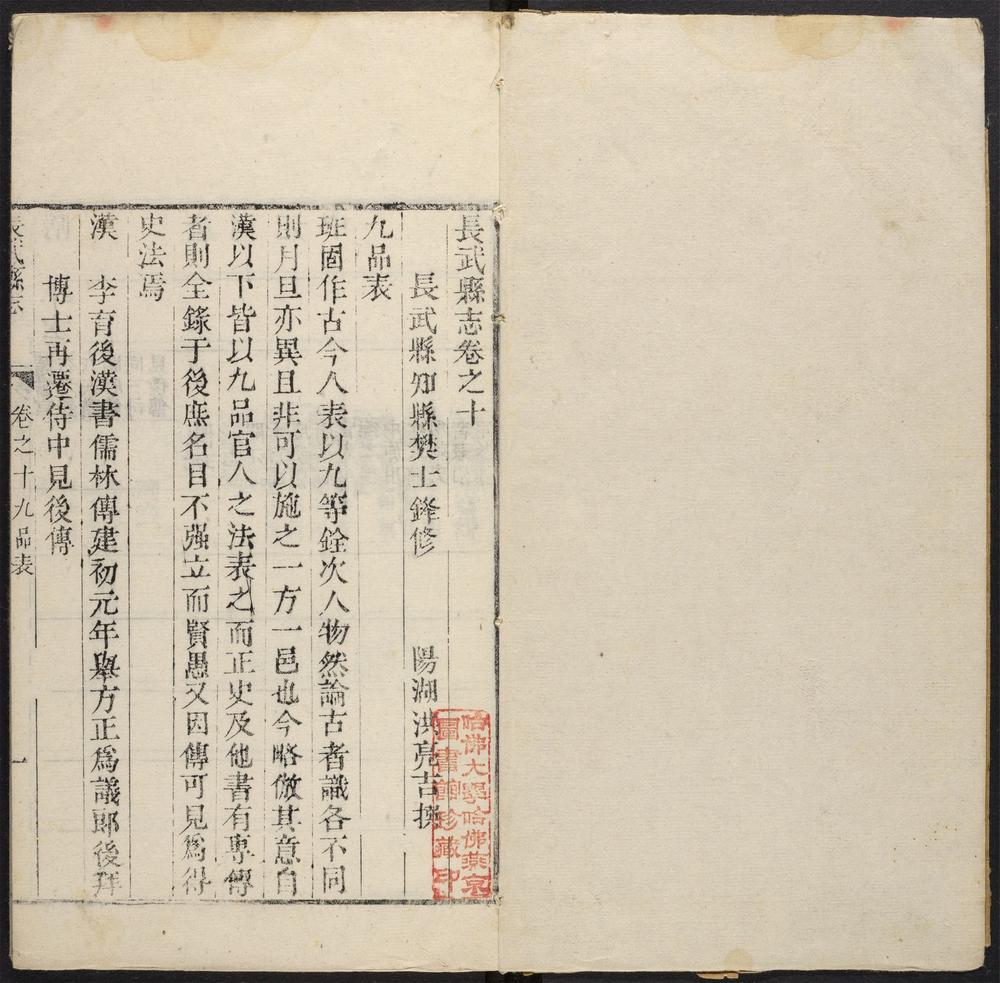 長武縣志卷之十
長武縣知縣樊士鋒修　陽湖洪亮吉撰
九品表
班固作古今人表以九等銓次人物然論古者識各不同
則月旦亦異且非可以施之一方一邑也今略倣其意自
漢以下皆以九品官人之法表之而正史及他書有專傳
者則全錄于後庶名目不强立而賢愚又因傳可見爲得
史法焉
漢　李育後漢書儒林傳建初元年舉方正爲議郎後拜
博士再遷侍中見後傳
長武縣志　卷之十九品表　一
哈佛大學哈佛燕京
圖書館珍藏印